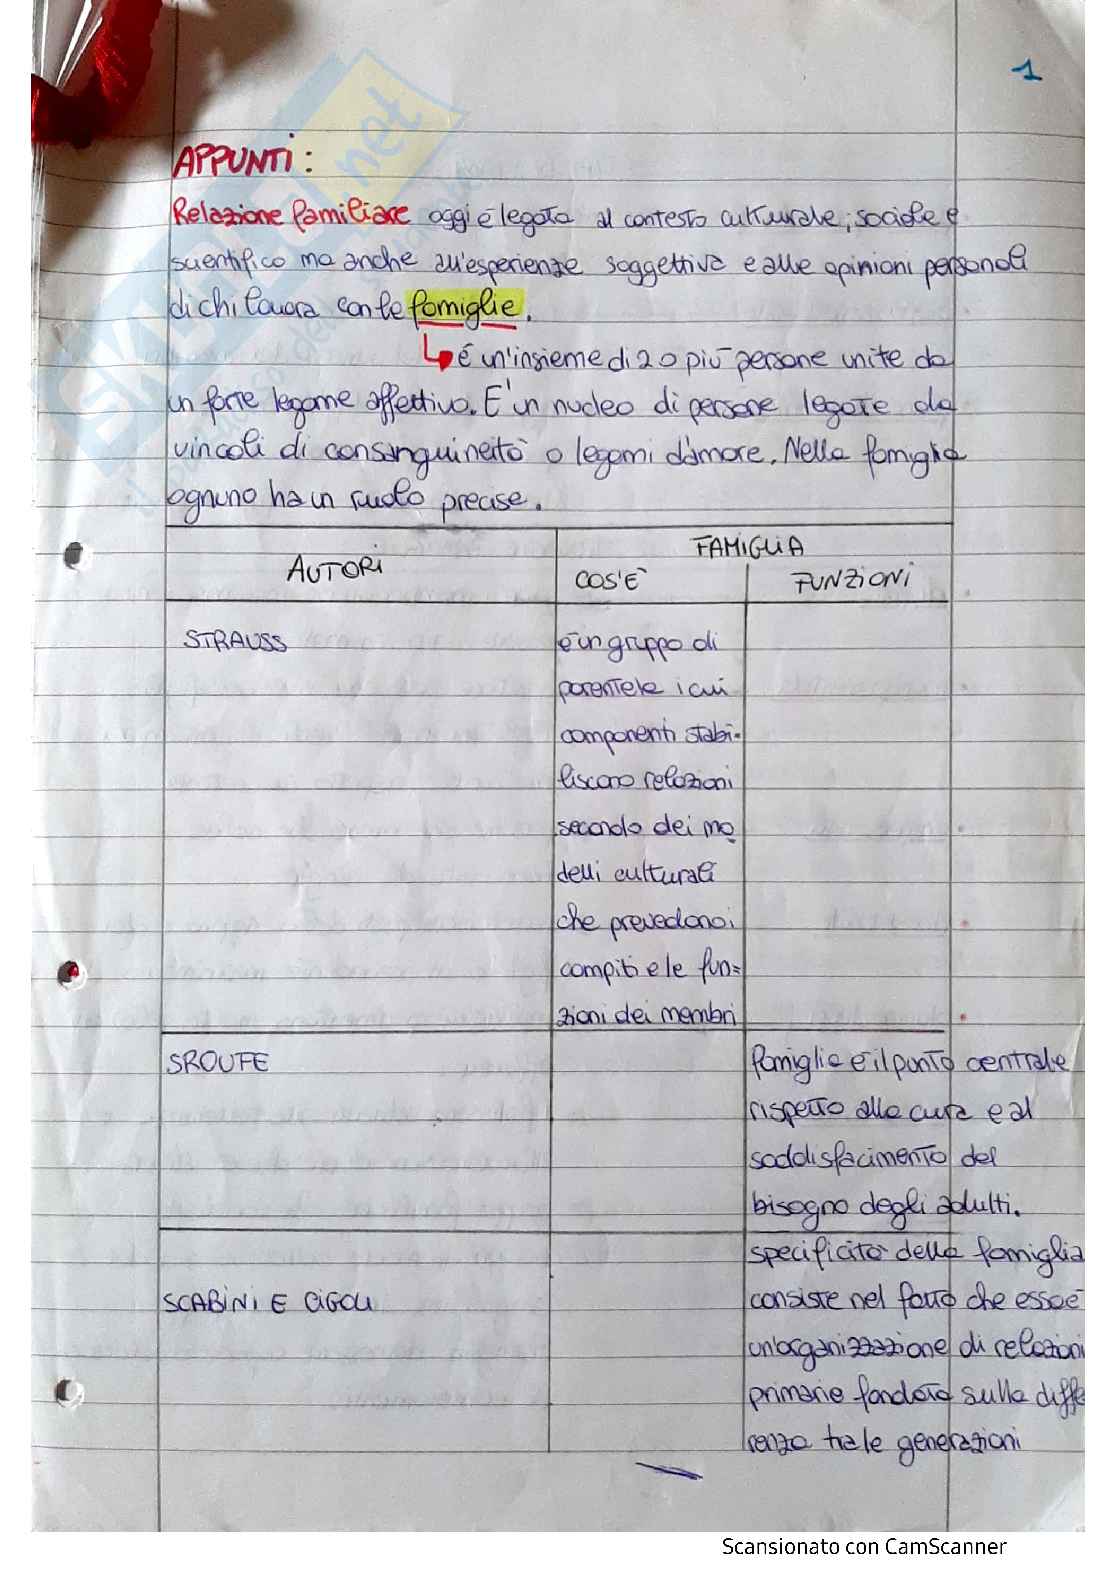 1
APPUNTI:
Relazione familiare oggi è legata al contesto culturale, sociale e
scientifico ma anche all'esperienze soggettive e alle opinioni personali
di chi lavora con le famiglie.
é un'insieme di 2 o più persone unite da
un forte legame affettivo. E' un nucleo di persone legate da
vincoli di consanguineità o legami d'amore. Nella famiglia
ognuno ha un ruolo precise.
AUTORI
FAMIGLIA
COS'E'
FUNZIONI
STRAUSS
è un gruppo di
parentele i cui
componenti stabi-
liscono relazioni
secondo dei mo
delli culturali
che prevedono i
compiti e le fun=
zioni dei membri
SROUFE
famiglia è il punto centrale
rispetto alla cura e al
soddisfacimento del
bisogno degli adulti.
SCABINI E CIGOLI
specificità della famiglia
consiste nel fatto che essa è
un'organizzazione di relazioni
primarie fondata sulla diffe
renza tra le generazioni
Scansionato con CamScanner